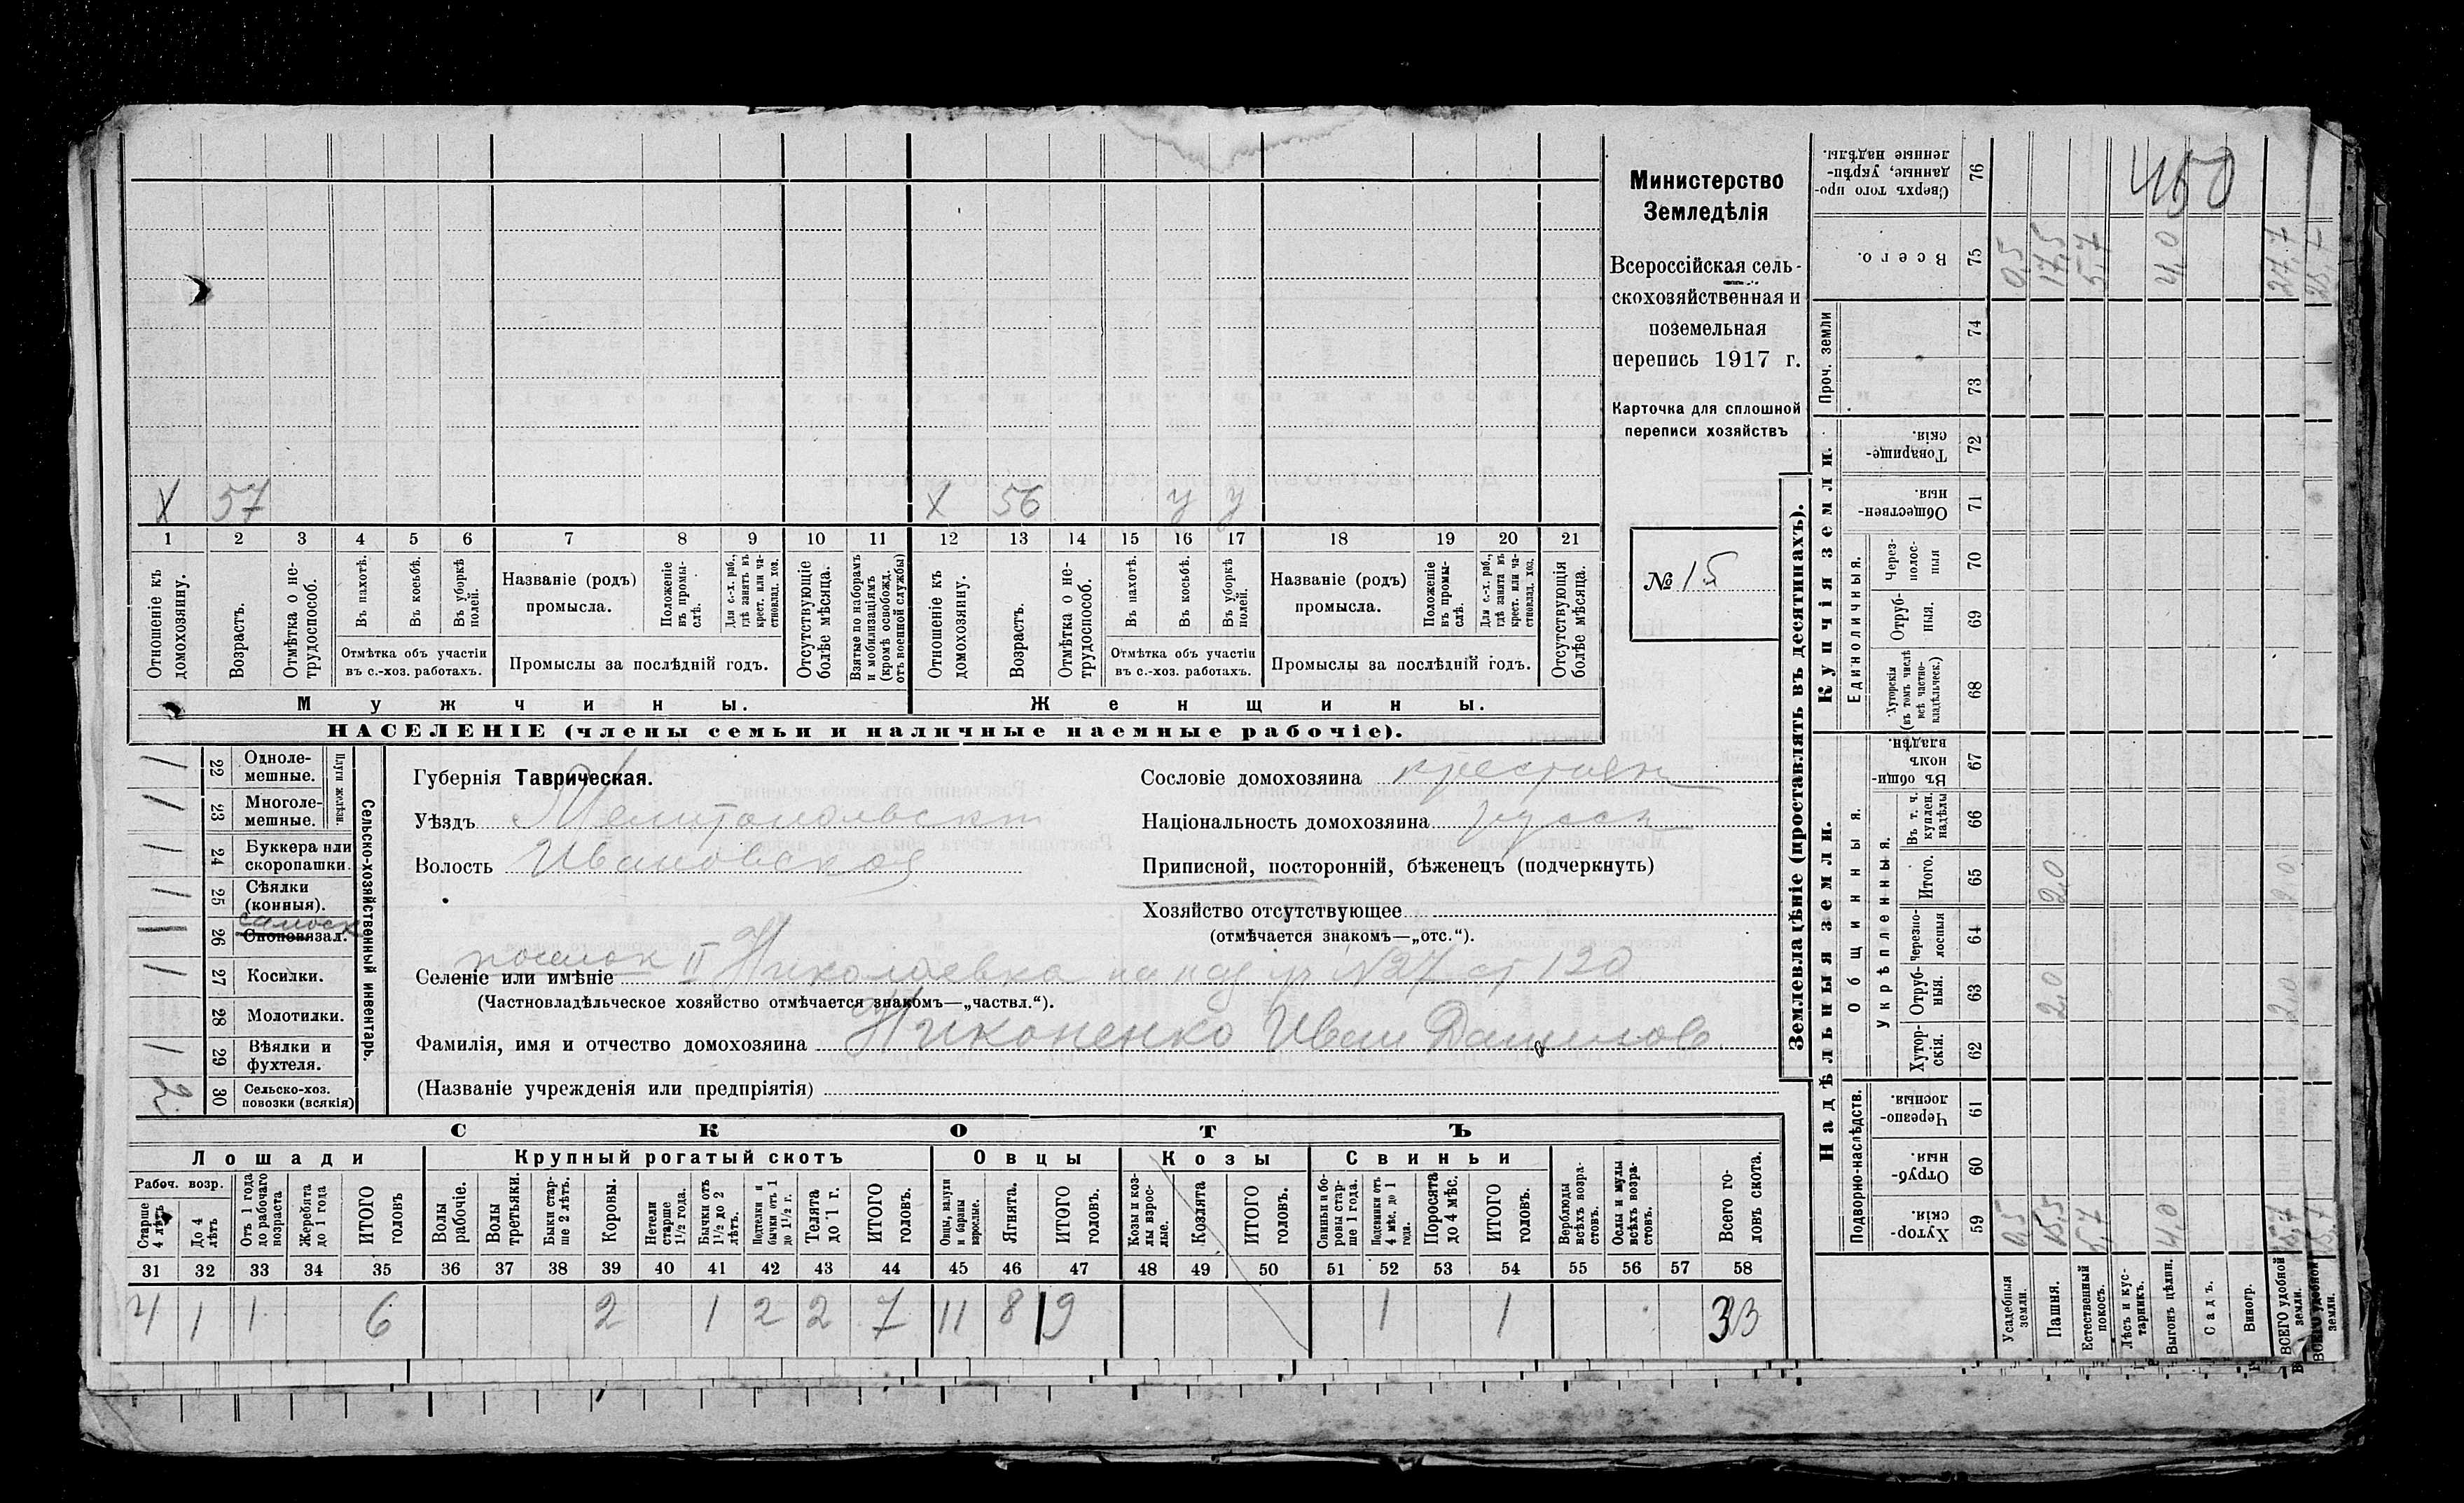 X 57 X 56 у у
1 2 3 4 5 6 7 8 9 10 11 12 13 14 15 16 17 18 19 20 21
Отношеніе къ домохозяину.
Возрастъ.
Отмѣтка о не-трудоспособ.
Въ пахотѣ.
Въ косьбѣ.
Въ уборкѣ полей.
Отмѣтка объ участіи
въ с.-хоз. работахъ.
Названіе (родъ)
промысла.
Положеніе въ промы-слѣ.
Для с.-х. раб., гдѣ занятъ въ крест. или ча-стновлад. хоз.
Промыслы за послѣдній годъ.
Отсутствующіе болѣе мѣсяца.
Взятые по наборамъ и мобилизаціямъ (кромѣ освобожд. отъ военной службы)
Отношеніе къ домохозяину.
Возрастъ.
Отмѣтка о не-трудоспособ.
Въ пахотѣ.
Въ косьбѣ.
Въ уборкѣ полей.
Отмѣтка объ участіи
въ с.-хоз. работахъ.
Названіе (родъ)
промысла.
Положеніе въ промы-слѣ.
Для с.-х. раб., гдѣ занятъ въ крест. или ча-стновлад. хоз.
Промыслы за послѣдній годъ.
Отсутствующія болѣе мѣсяца.
Мужчины.
Женщины.
НАСЕЛЕНІЕ (члены семьи и наличные наемные рабочіе).
Министерство
Земледѣлія
Всероссійская сель-
скохозяйственная и
поземельная
перепись 1917 г.
Карточка для сплошной
переписи хозяйствъ
№ 15
1 22 Одноле-мешные.
1 23 Многоле-мешные.
Плуги желѣзн.
1 24 Буккера или скоропашки.
1 25 Сѣялки (конныя).
самоск
26 Сноповязал.
1 27 Косилки.
28 Молотилки.
1 29 Вѣялки и фухтеля.
2 30 Сельско-хоз. повозки (всякія)
Сельско-хозяйственный инвентарь.
Губернія Таврическая.
Уѣздъ Мелитопольскій
Волость Ивановская
Сословіе домохозяина крестьян
Національность домохозяина русск
Приписной, посторонній, бѣженецъ (подчеркнуть)
Хозяйство отсутствующее
(отмѣчается знакомъ—„отс.“).
поселок
Селеніе или имѣніе II Николаевка на над уч №27 ст 120
(Частновладѣльческое хозяйство отмѣчается знакомъ—„частвл.“).
Фамилія, имя и отчество домохозяина Никоненко Иван Данилов
(Названіе учрежденія или предпріятія)
СКОТЪ
Лошади
Крупный рогатый скотъ
Овцы
Козы
Свиньи
Рабоч. возр.
Старше 4 лѣтъ
До 4 лѣтъ
Отъ 1 года до рабочаго возраста
Жеребята до 1 года
ИТОГО головъ
Волы рабочіе.
Волы третьяки.
Быки стар-ше 2 лѣтъ.
Коровы.
Нетели старше 1½ года.
Бычки отъ 1½ до 2 лѣтъ.
Подтелки и бычки отъ 1 до 1½ г.
Телята до 1 г.
ИТОГО головъ.
Овцы, валухи и бараны взрослые.
Ягнята.
ИТОГО головъ.
Козы и коз-лы взрос-лые.
Козлята
ИТОГО головъ.
Свиньи и бо-ровы стар-ше 1 года.
Подсвинки отъ 4 мѣс. до 1 года.
Поросята до 4 мѣс.
ИТОГО головъ.
Верблюды всѣхъ возра-стовъ.
Ослы и мулы всѣхъ возра-стовъ.
Всего го-ловъ скота.
31 32 33 34 35 36 37 38 39 40 41 42 43 44 45 46 47 48 49 50 51 52 53 54 55 56 57 58
4 1 1 6 2 1 2 2 7 11 8 19 1 1 33
Землевладѣніе (проставлять въ десятинахъ).
Надѣльныя земли.
Купчія земли.
Проч. земли
Подворно-наслѣдств.
Общинныя.
Укрѣпленныя.
Единоличныя.
Сверхъ того про-данные, укрѣп-ленные надѣлы. 76
450
Всего. 75
0,5 17,5 5,7 4,0 27,7
74
73
Товарище-скія. 72
Обществен-ныя. 71
Через-полос-ныя 70
Отруб-ныя. 69
Хуторскія (въ томъ числѣ всѣ частно-владѣльческ.) 68
Въ общи-номъ владѣн. 67
Въ т. ч. куплен. надѣлы 66
Итого. 65
2,0 2,0
Черезпо-лосныя 64
Отруб-ныя. 63
2,0 2,0
Хутор-скія. 62
Черезпо-лосныя. 61
Отруб-ныя. 60
Хутор-скія. 59
0,5 15,5 5,7 4,0 25,7
Усадебныя земли.
Пашня.
Естественный покосъ.
Лѣсъ и кус-тарникъ.
Выгонъ цѣлин.
Садъ.
Виногр.
ВСЕГО удобной земли.